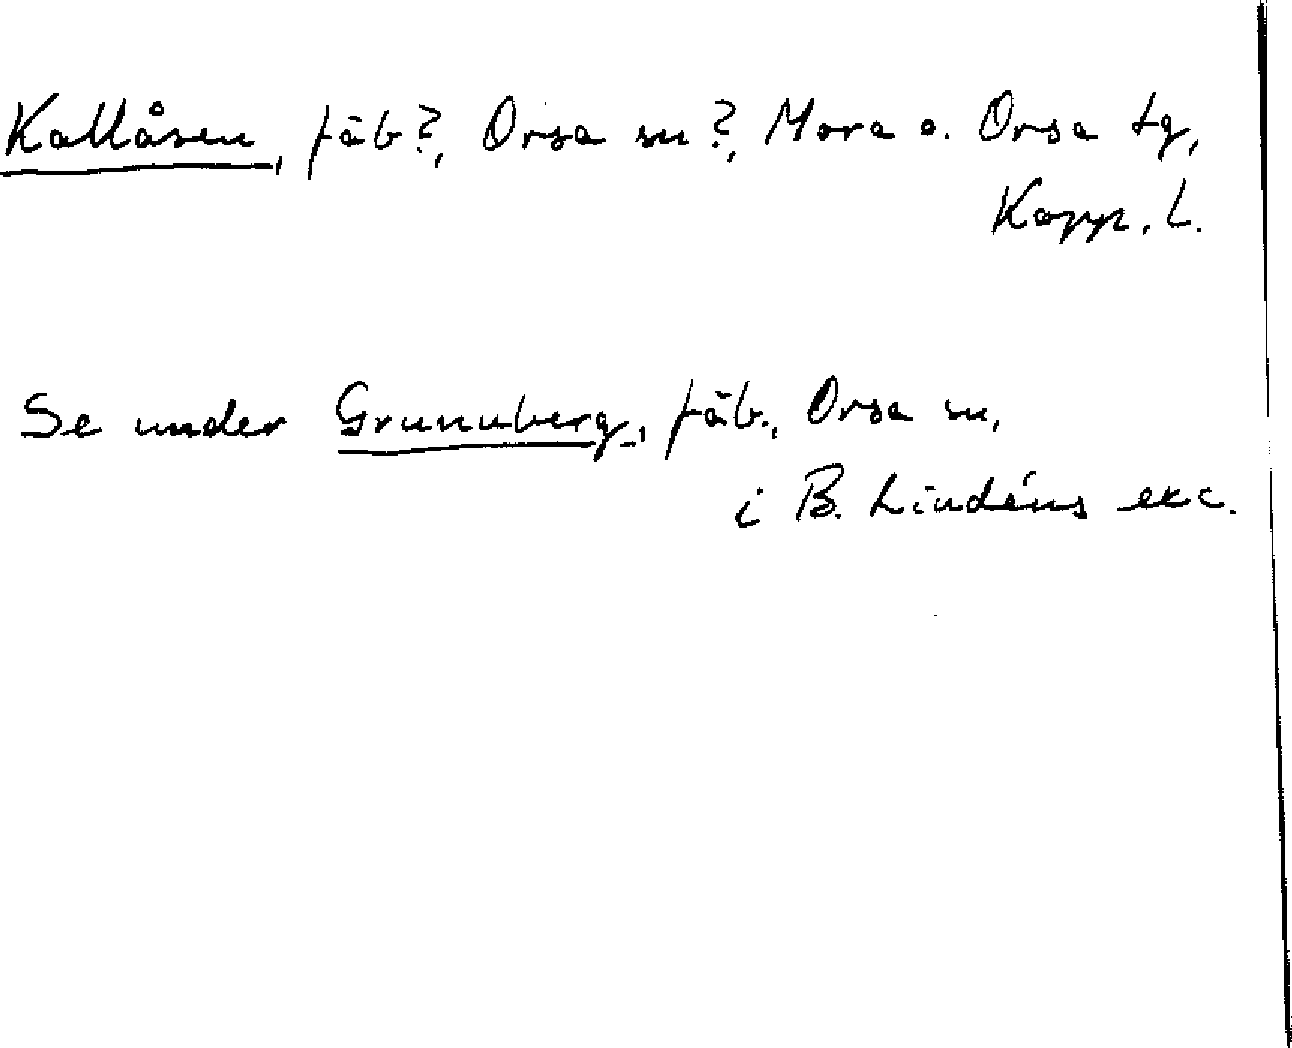 Kallåsen, fäb?, Orsa sn?, Mora o. Orsa tg,
Kopp. l.
Se under Grunuberg, fäb., Orsa sn,
i B. Lindéns exc.